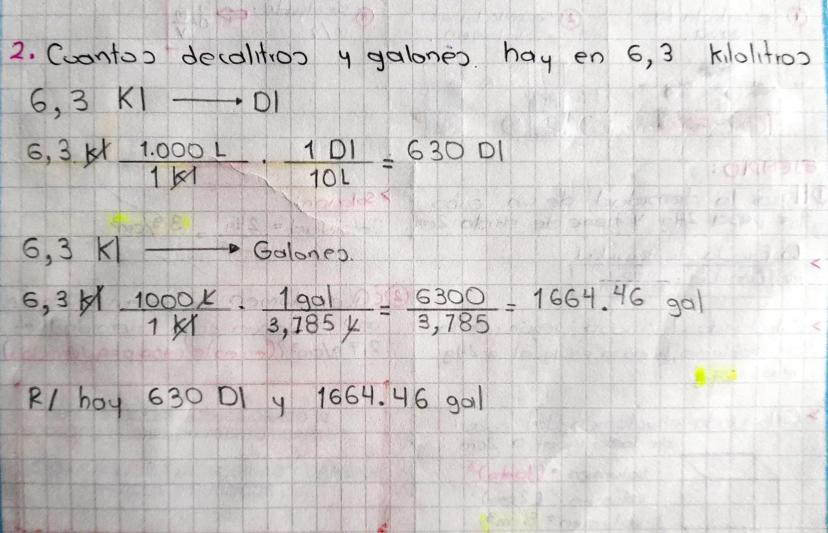 2. Cuantos decalitros y galones. hay en 6,3 kilolitros
6,3 Kl → Dl
6,3 kl 1.000 L / 1 kl . 1 Dl / 10L = 630 Dl
6,3 Kl → Galones.
6,3 kl 1000 L / 1 kl . 1 gal / 3,785 L = 6300 / 3,785 = 1664.46 gal
R/ hay 630 Dl y 1664.46 gal